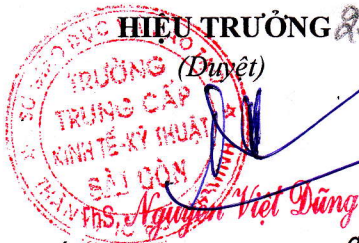 HIỆU TRƯỞNG
(Duyệt)
TRƯỜNG
TRUNG CẤP
KINH TẾ-KỸ THUẬT
SÀI GÒN
ThS. Nguyễn Việt Dũng